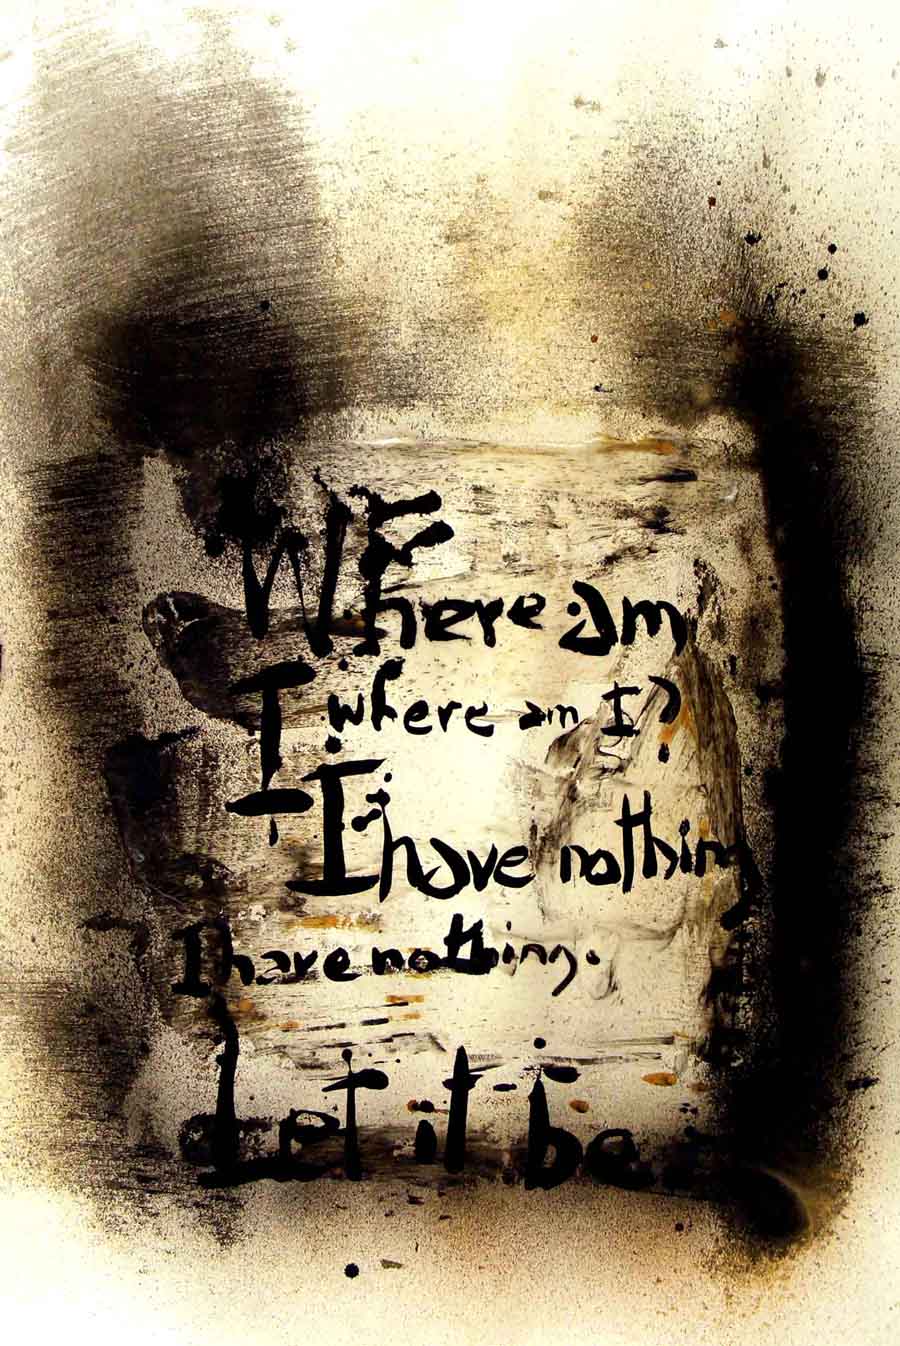 Where am
I where am I?
I have nothing
I have nothing.
Let it be